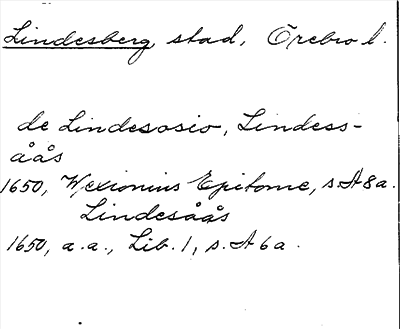 Lindesberg, stad, Örebro l.
de Lindesosio, Lindess-
åås
1650, Wexionius Epitome, s. A8a.
Lindesåås
1650, a.a., Lib. 1, s. A6a.